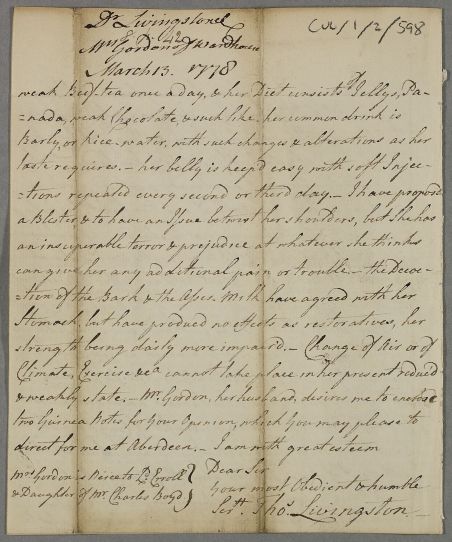 Dr Livingstone
CUL/1/2/598
Mrs Gordon of Wardhouse
March 13. 1778
weak Beef tea once a day, & her Diet consists of Jellys, Pa-
=nada, weak Chocolate, & such like. her common drink is
Barly, or Rice-water, with such changes & alterations as her
taste requires. - her belly is keep'd easy with soft Injec-
=tions repeated every second or third day. - I have proposed
a Blister & to have an Issue betwixt her shoulders, but she has
an insuperable terror & prejudice at whatever she thinks
can give her any additional pain or trouble. - the Decoc-
=tion of the Bark & the Asses Milk have agreed with her
Stomach, but have produced no effects as restoratives, her
strength being daily more impair'd. - Change of Air or of
Climate, Exercise &ca cannot take place in her present reduced
& weakly state. - Mr. Gordon, her husband, desires me to enclose
two Guinea Notes for Your Opinion, which You may please to
direct for me at Aberdeen. - I am with great esteem
Dear Sir
Your most Obedient & humble
Sert. Thos. Livingston
Mrs Gordon is Niece to Ld. Erroll
& Daughter of Mr Charles Boyd